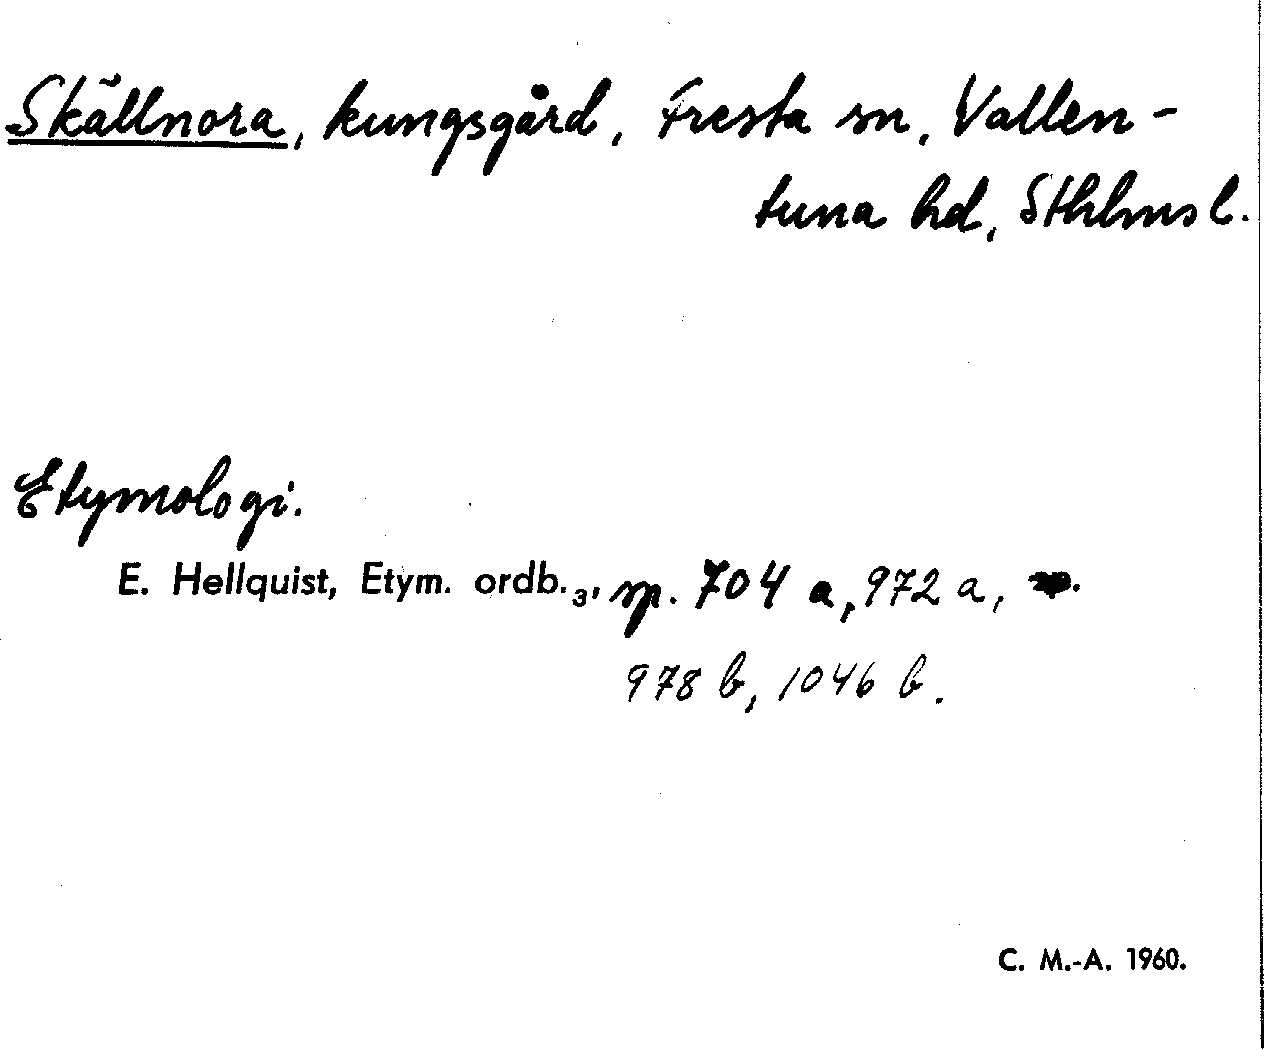 Skällnora, kungsgård, Fresta sn, Vallen-
tuna hd, Sthlms l.
Etymologi.
E. Hellquist, Etym. ordb.₃, sp. 704 a, 972 a,
978 b, 1046 b.
C. M.-A. 1960.